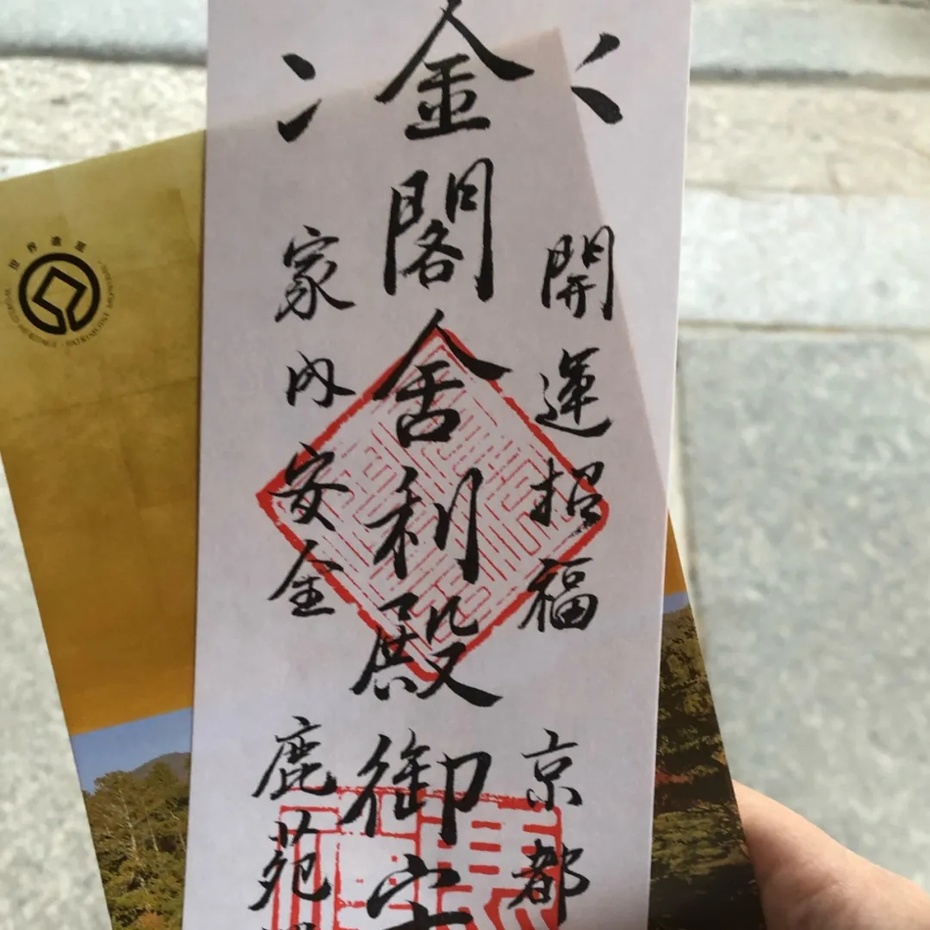 開運招福
京都
金閣舍利殿御守
家内安全
鹿苑
世界遺産
WORLD HERITAGE · PATRIMOINE MONDIAL